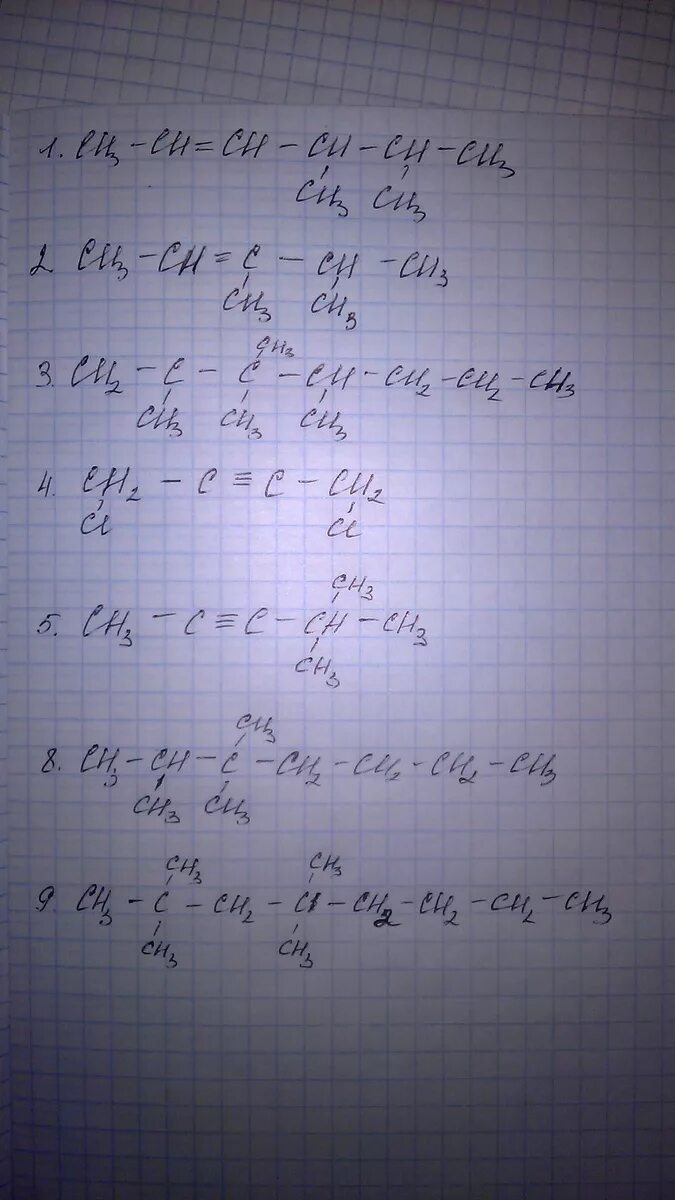 1. CH3 - CH = CH - CH - CH - CH3
CH3 CH3
2. CH3 - CH = C - CH - CH3
CH3 CH3
CH3
3. CH2 - C - C - CH - CH2 - CH2 - CH3
CH3 CH3 CH3
4. CH2 - C ≡ C - CH2
Cl Cl
CH3
5. CH3 - C ≡ C - CH - CH3
CH3
CH3
8. CH3 - CH - C - CH2 - CH2 - CH2 - CH3
CH3 CH3
CH3 CH3
9. CH3 - C - CH2 - C - CH2 - CH2 - CH2 - CH3
CH3 CH3